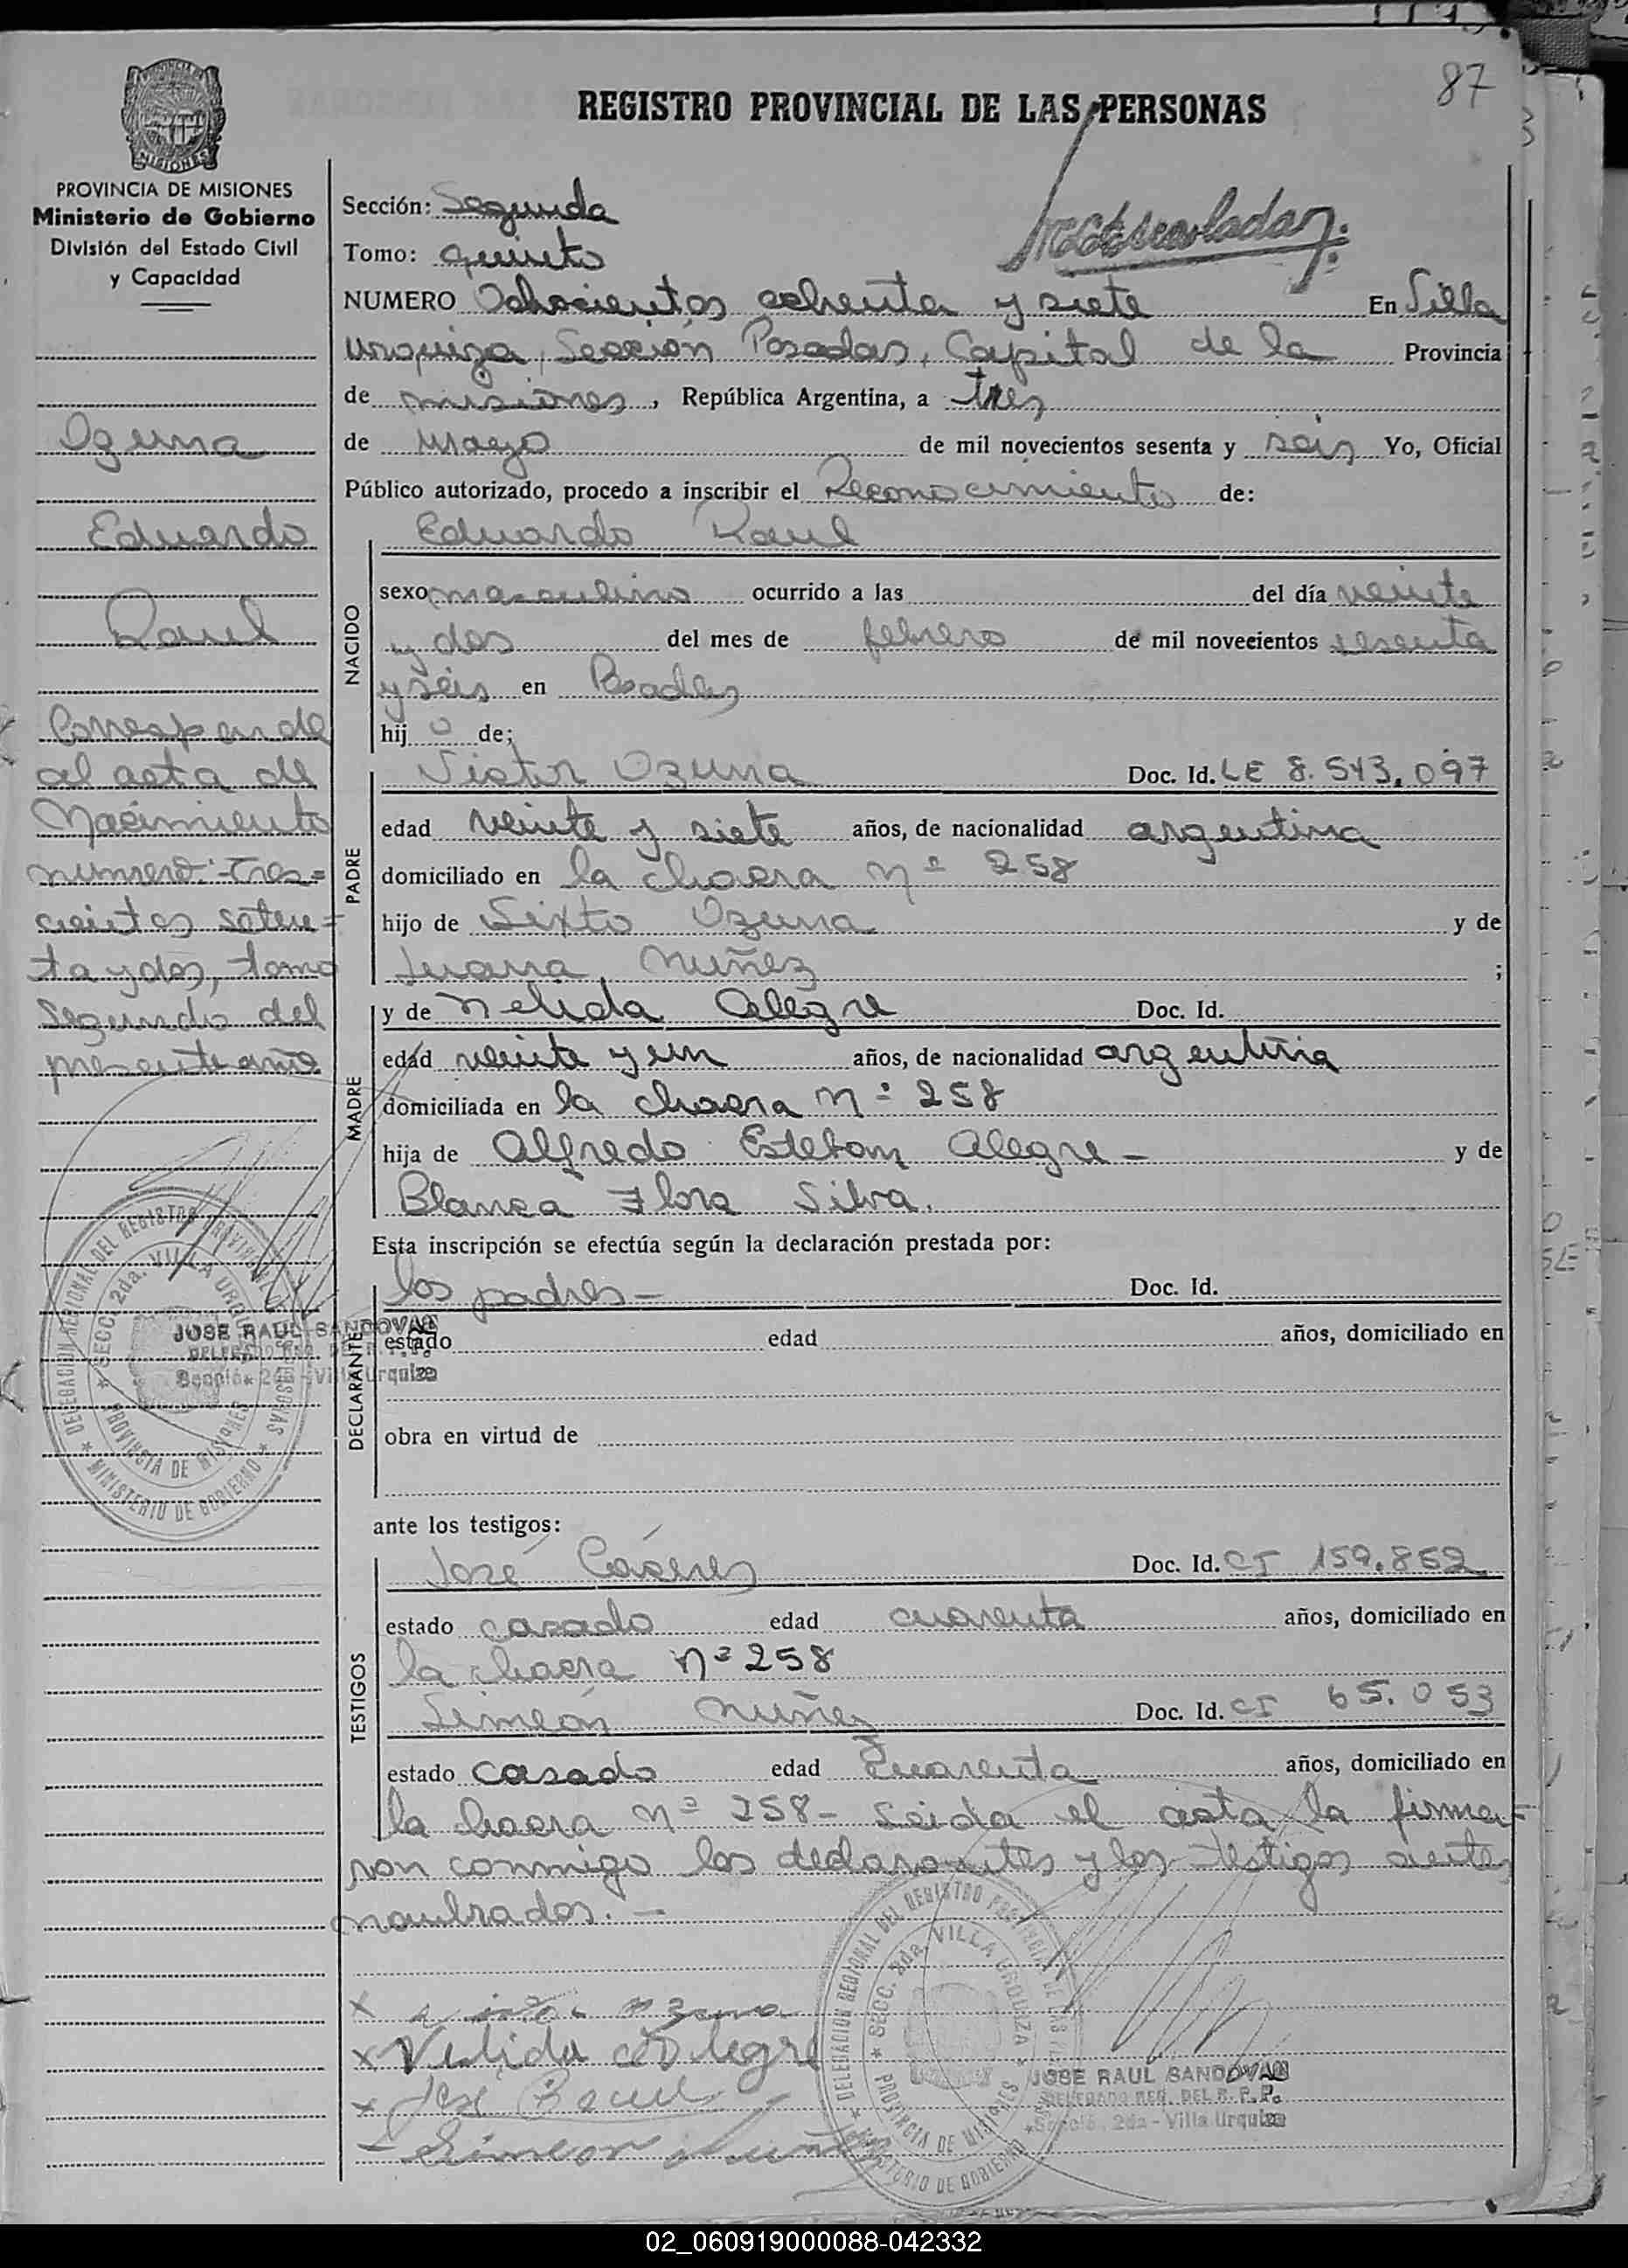 87
REGISTRO PROVINCIAL DE LAS PERSONAS
MISIONES
PROVINCIA DE MISIONES
Ministerio de Gobierno
División del Estado Civil
y Capacidad
Ozuna
Eduardo
Raul
Corresponde
al acta de
Nacimiento
numero: Tres=
cientos seten=
ta y dos, tomo
segundo del
presente año
DELEGACION REGIONAL DEL REGISTRO PROVINCIAL DE LAS PERSONAS
SECC. 2da. VILLA URQUIZA
PROVINCIA DE MISIONES
MINISTERIO DE GOBIERNO
JOSE RAUL SANDOVAL
DELEGADO REG. DEL R. P. P.
Sección 2da - Villa Urquiza
Sección: Segunda
Tomo: quinto
NUMERO Ochocientos ochenta y siete En Villa
Urquiza, Sección Posadas, Capital de la Provincia
de misiones, República Argentina, a tres
de Mayo de mil novecientos sesenta y seis Yo, Oficial
Público autorizado, procedo a inscribir el Reconocimiento de:
NACIDO
Eduardo Raul
sexo masculino ocurrido a las del día veinte
y dos del mes de febrero de mil novecientos sesenta
y seis en Posadas
hijo de;
PADRE
Victor Ozuna Doc. Id. LE 8.543.097
edad veinte y siete años, de nacionalidad argentina
domiciliado en la chacra Nº 258
hijo de Sixto Ozuna y de
Juana Nuñez ;
MADRE
y de Nelida Alegre Doc. Id.
edad veinte y un años, de nacionalidad argentina
domiciliada en la chacra Nº 258
hija de Alfredo Esteban Alegre - y de
Blanca Flora Silva.
Esta inscripción se efectúa según la declaración prestada por:
DECLARANTE
los padres - Doc. Id.
estado edad años, domiciliado en
obra en virtud de
ante los testigos:
TESTIGOS
José Cáceres Doc. Id. CI 159.852
estado casado edad cuarenta años, domiciliado en
la chacra Nº 258
Simeón Nuñez Doc. Id. CI 65.053
estado casado edad cuarenta años, domiciliado en
la chacra Nº 258 - Leida el acta la firma=
ron conmigo los declarantes y los testigos antes
nombrados. -
x Ozuna
x Nelida Alegre
x José
- Simeon Nuñ
DELEGACION REGIONAL DEL REGISTRO PROVINCIAL DE LAS PERSONAS
SECC. 2da. VILLA URQUIZA
PROVINCIA DE MISIONES
MINISTERIO DE GOBIERNO
JOSE RAUL SANDOVAL
DELEGADO REG. DEL R. P. P.
Sección 2da - Villa Urquiza
02_060919000088-042332